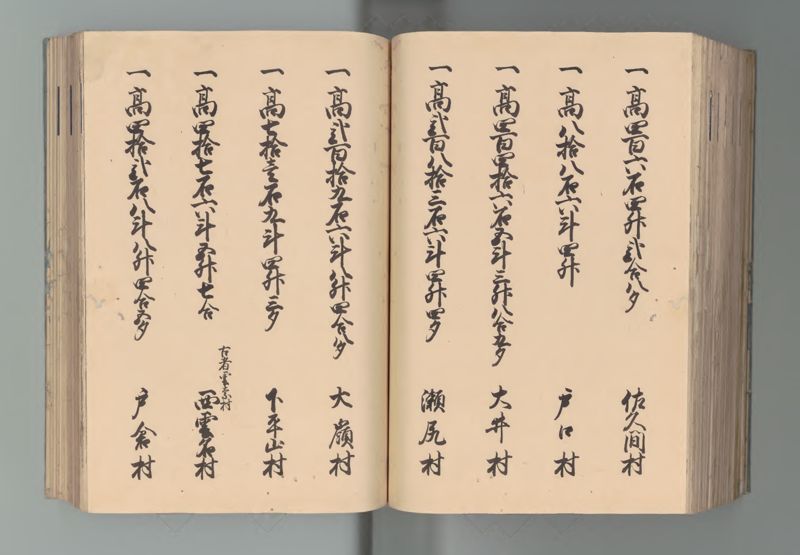 一高四百六石四升弐合八夕 佐久間村
一高八拾八石六斗四升 戸口村
一高四百四拾六石五斗三升八合五夕 大井村
一高弐百八拾三石六斗四升四夕 瀬尻村
一高弐百拾九石六斗八升四合八夕 大嶺村
一高七拾壱石九斗四升三夕 下平山村
一高四拾七石六斗五升七合 西雲名村
古者雲名村
一高四拾弐石八斗八升四合五夕 戸倉村